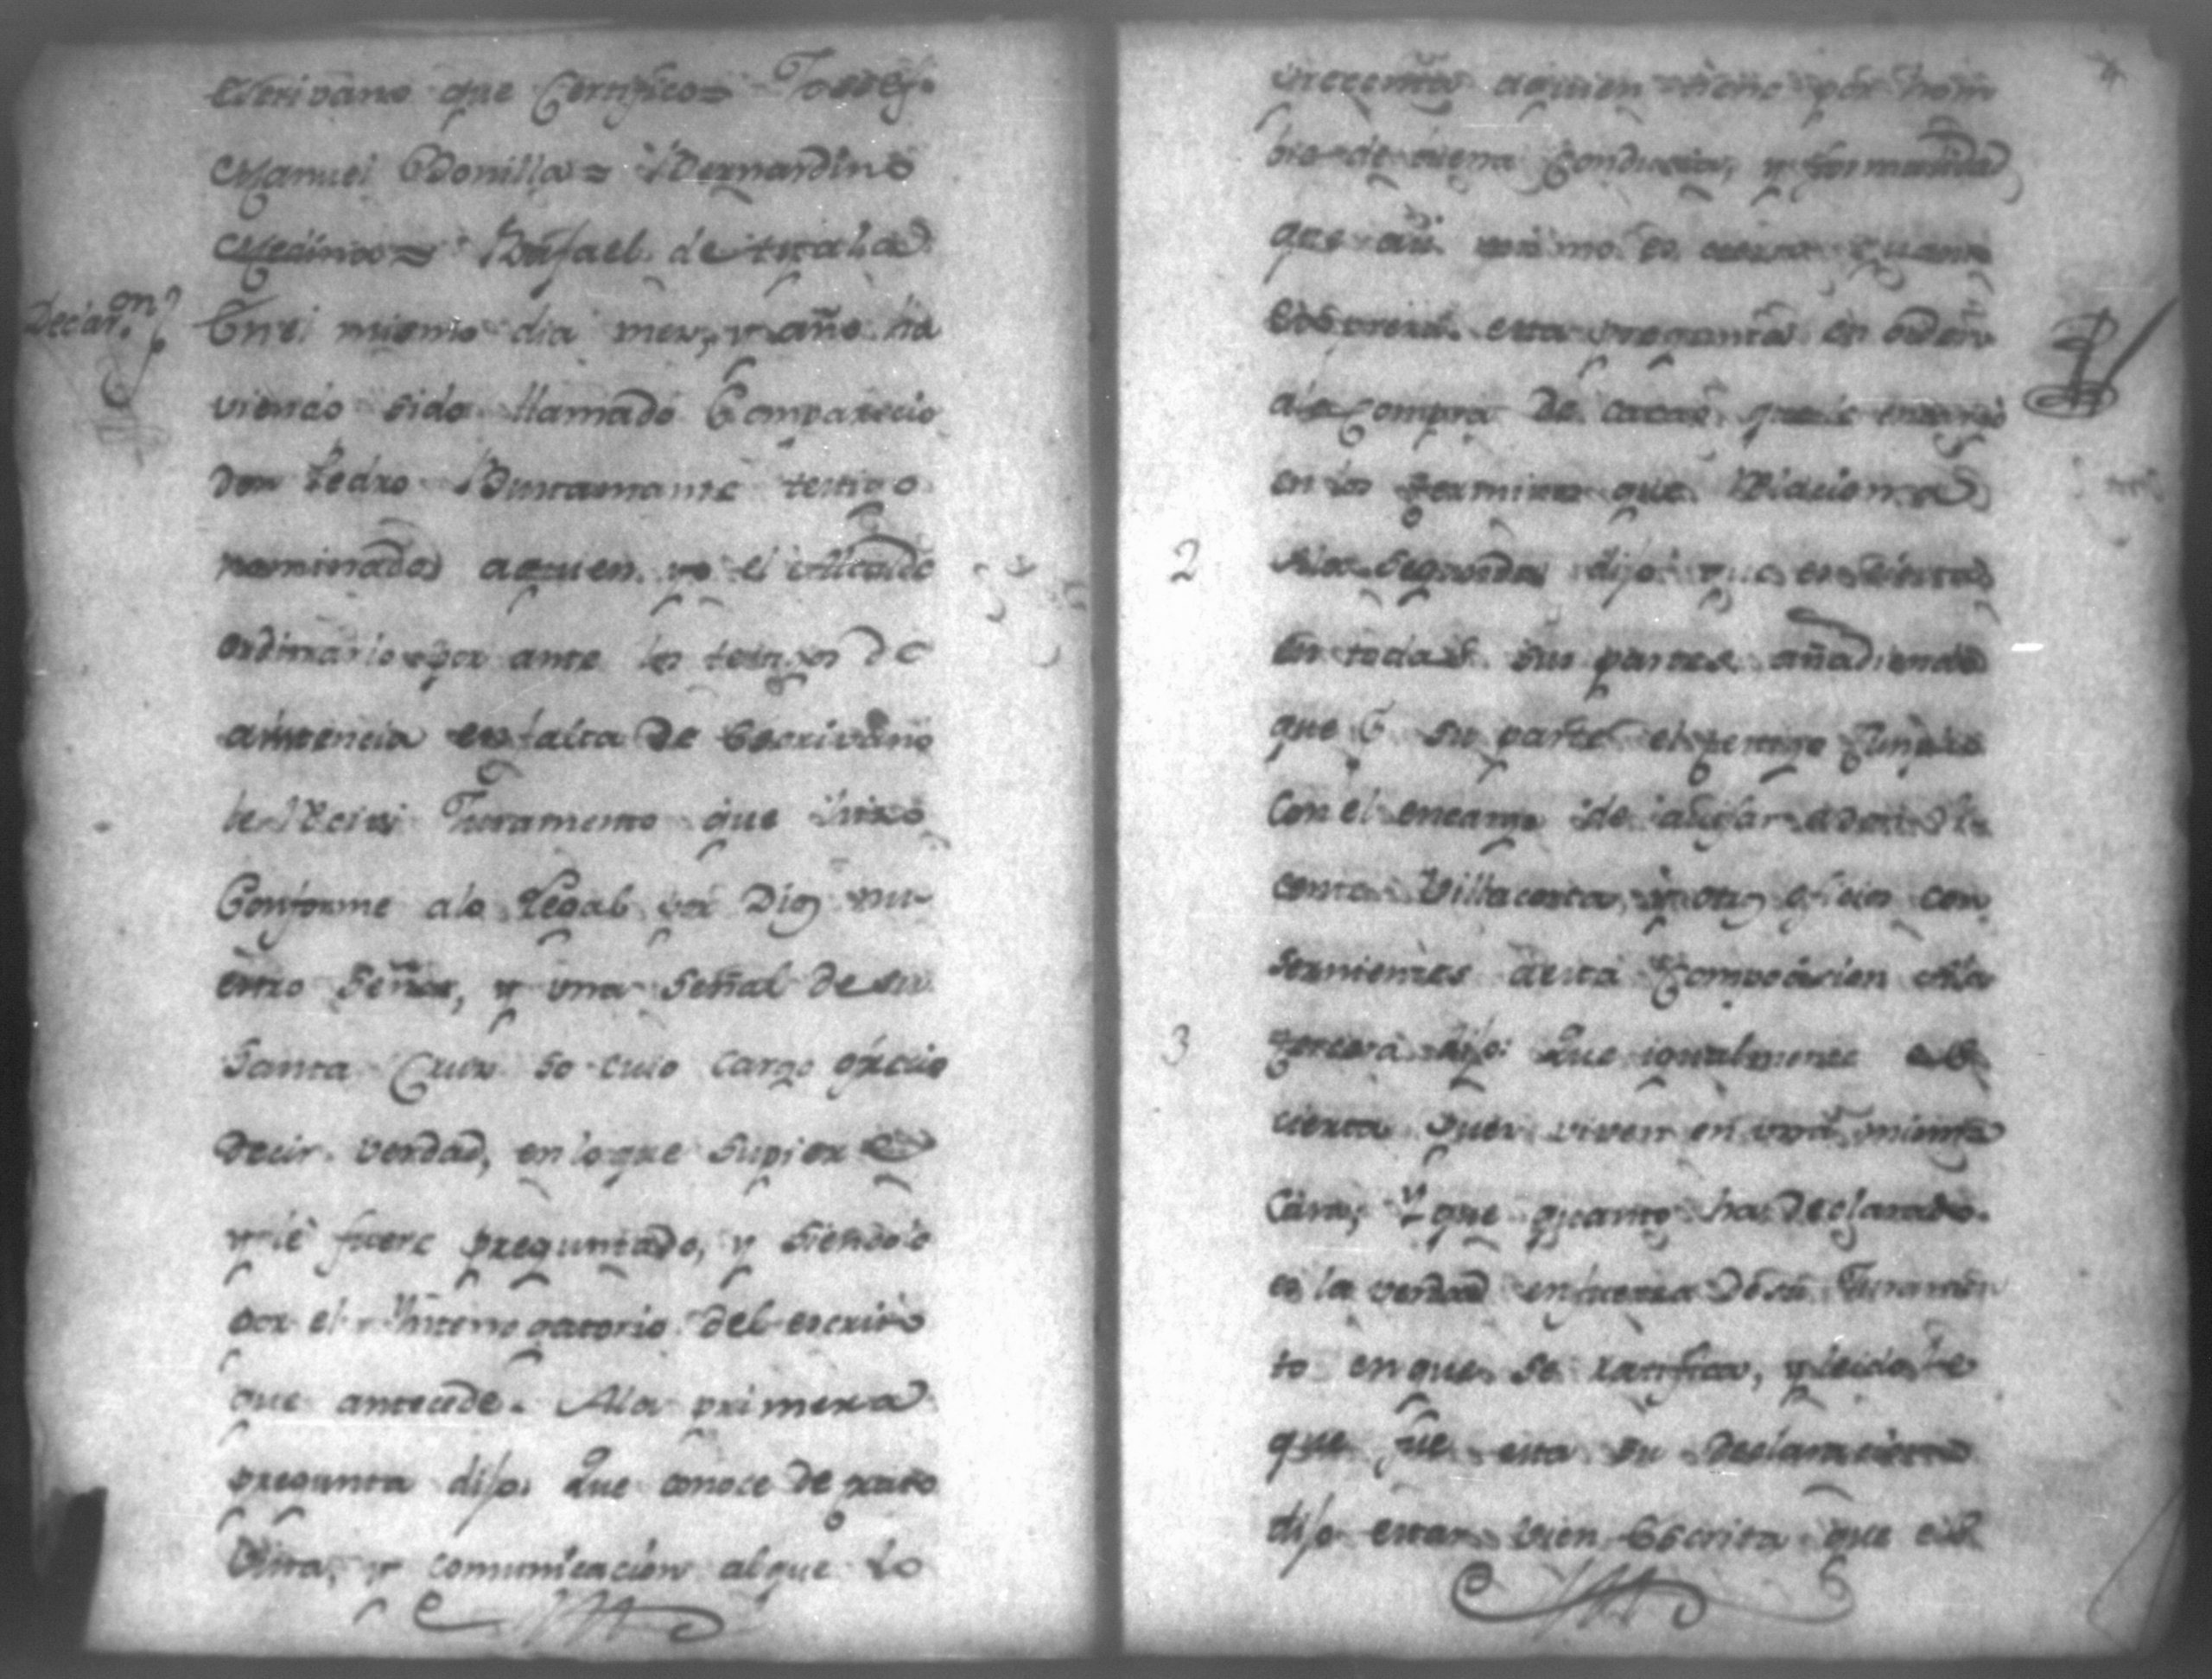 Escrivano que Certifico = Josef
Manuel Bonilla = Bernardino
Medina = Rafael de
Declar.on
En el mismo dia mes, y año ha
viendo sido llamado Comparecio
don Pedro Bustamante testigo
nominado aquien yo el Alcalde
ordinario por ante los testigos de
asistencia en falta de Escrivano
le Reciví Juramento que hizo
Conforme alo Legal por Dios nu
estro Señor, y una Señal de su
Santa Cruz so cuio cargo ofrecio
decir verdad, en lo que supiere
y le fuere preguntado, y siendolo
por el Ynterrogatorio del escrito
que antecede. Ala primera
pregunta dijo: Que conoce de trato
Vista, y comunicacion al que lo
presenta aquien tiene por hom
bre de buena Conducta, y formalidad
que asi mismo es cierto quanto
esta pregunta en orden
ala Compra de cacao que le
en los terminos que Relaciona
2
Ala Segunda dijo: que es cierta
en todas sus partes añadiendo
que por su parte el testigo Cumplio
Con el encargo de abisar a don Vi
cente Villacorta, y otros oficios con
sernientes a esta Compocision Ala
3
tercera dijo: Que igualmente es
cierta Que viven en una misma
Casa, Y que quanto ha declarado
es la verdad en fuerza de su Juramen
to en que se ratifica, y leida le
que fue esta su declaracion
dijo estar bien Escrita que es